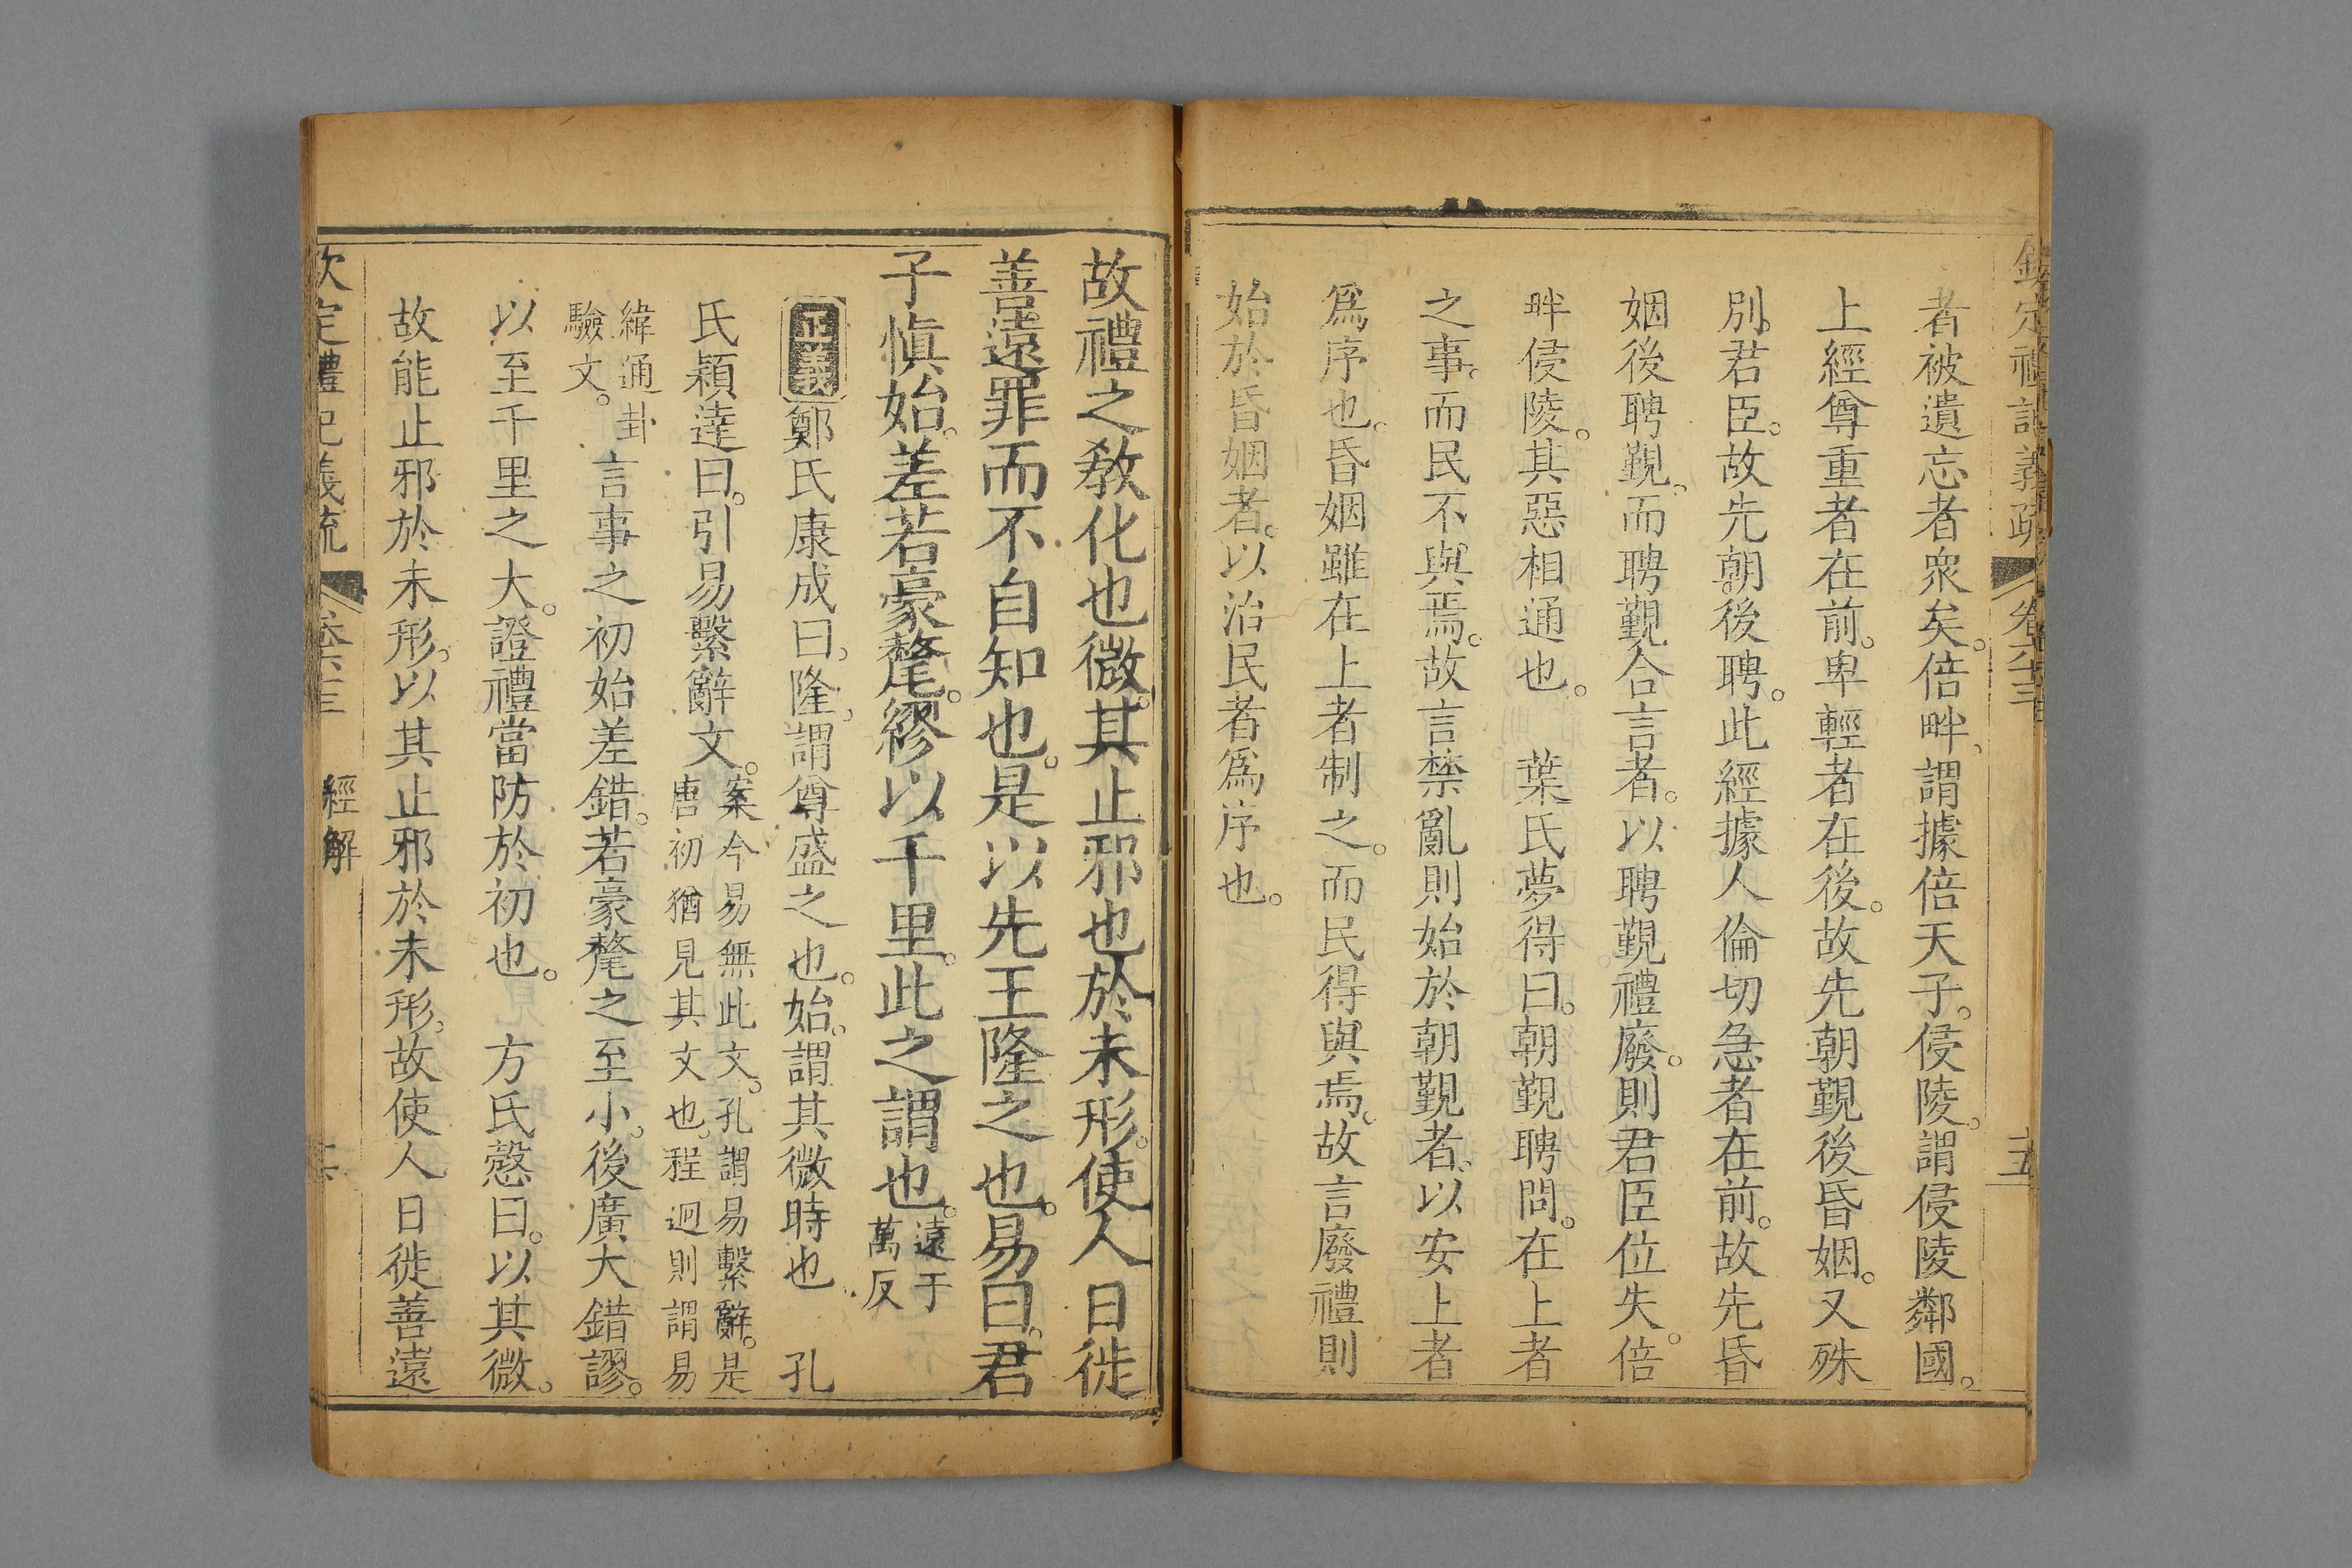 欽定禮記義疏 卷六十三 十五
者被遺忘者衆矣。倍畔、謂據倍天子。侵陵、謂侵陵鄰國。
上經尊重者在前。卑輕者在後。故先朝覲後昏姻。又殊
別君臣。故先朝後聘。此經據人倫切急者在前。故先昏
姻後聘覲、而聘覲合言者。以聘覲禮廢。則君臣位失。倍
畔侵陵。其惡相通也。 葉氏夢得曰。朝覲聘問。在上者
之事。而民不與焉。故言禁亂則始於朝覲者、以安上者
爲序也。昏姻雖在上者制之。而民得與焉。故言廢禮則
始於昏姻者。以治民者爲序也。
故禮之敎化也微。其止邪也於未形。使人日徙
善遠罪而不自知也。是以先王隆之也。易曰。君
子愼始。差若豪氂。繆以千里。此之謂也。遠于萬反
正義 鄭氏康成曰、隆、謂尊盛之也。始、謂其微時也 孔
氏穎達曰。引易繫辭文。案今易無此文。孔謂易繫辭。是唐初猶見其文也。程迥則謂易
緯通卦驗文。言事之初始差錯。若豪氂之至小、後廣大錯謬。
以至千里之大。證禮當防於初也。 方氏慤曰。以其微、
故能止邪於未形。以其止邪於未形、故使人日徙善遠
欽定禮記義疏 卷六十三 經解